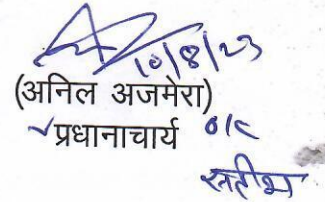 10/8/23
(अनिल अजमेरा)
प्रधानाचार्य o/c